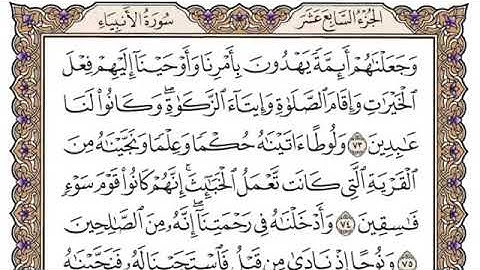 الجُزْءُ السَّابِعَ عَشَرَ
سُورَةُ الأَنبِيَاءِ
وَجَعَلْنَٰهُمْ أَئِمَّةً يَهْدُونَ بِأَمْرِنَا وَأَوْحَيْنَآ إِلَيْهِمْ فِعْلَ
ٱلْخَيْرَٰتِ وَإِقَامَ ٱلصَّلَوٰةِ وَإِيتَآءَ ٱلزَّكَوٰةِ ۖ وَكَانُوا۟ لَنَا
عَٰبِدِينَ ٧٣ وَلُوطًا ءَاتَيْنَٰهُ حُكْمًا وَعِلْمًا وَنَجَّيْنَٰهُ مِنَ
ٱلْقَرْيَةِ ٱلَّتِى كَانَت تَّعْمَلُ ٱلْخَبَٰٓئِثَ ۗ إِنَّهُمْ كَانُوا۟ قَوْمَ سَوْءٍ
فَٰسِقِينَ ٧٤ وَأَدْخَلْنَٰهُ فِى رَحْمَتِنَآ ۖ إِنَّهُۥ مِنَ ٱلصَّٰلِحِينَ
٧٥ وَنُوحًا إِذْ نَادَىٰ مِن قَبْلُ فَٱسْتَجَبْنَا لَهُۥ فَنَجَّيْنَٰهُ